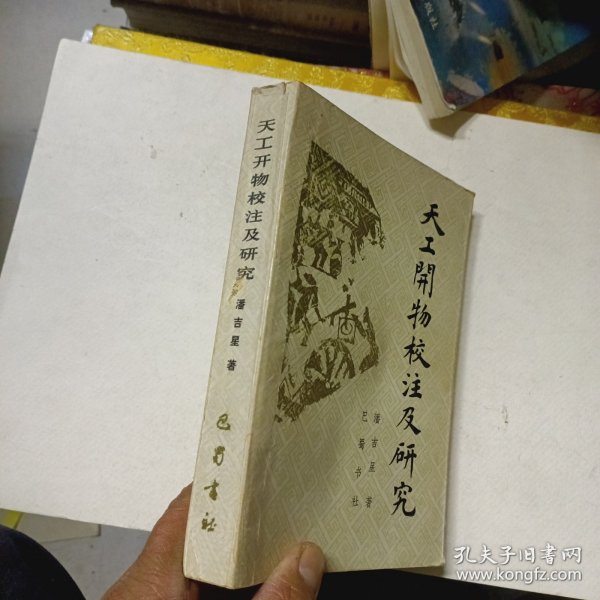 天工开物校注及研究
潘吉星 著
巴蜀書社
天工開物校注及研究
潘吉星 著
巴蜀书社
孔夫子旧书网
www.kongfz.com